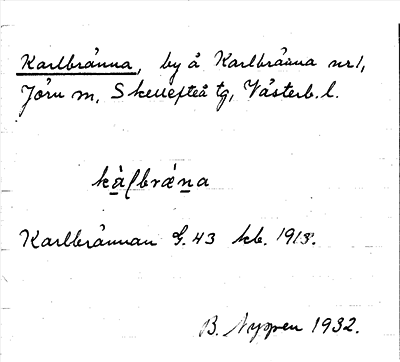 Karlbränna, by å Karlbränna nr 1,
Jörn sn, Skellefteå tg, Västerb. l.
kàlbrǽna
Karlbrännan G. 43 kb. 1913.
B. Nyppen 1932.